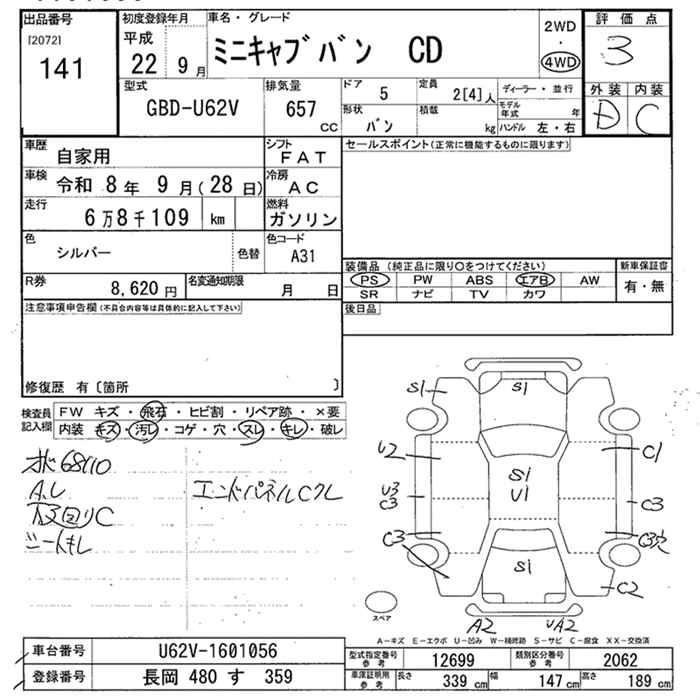 出品番号 初度登録年月 車名・グレード 2WD 評価点
[2072] 平成 ・ 3
141 22 9月 ミニキャブバン CD 4WD
型式 排気量 ドア 定員 ディーラー・並行 外装 内装
GBD-U62V 657 cc 5 2[4]人 モデル年式 年 D C
形状 積載
バン kg ハンドル 左・右
車歴 自家用 シフト FAT セールスポイント(正常に機能するものに限ります)
車検 令和 8年 9月(28日) 冷房 AC
走行 6万8千109 km 燃料 ガソリン
色 シルバー 色替 色コード A31
装備品(純正品に限り○をつけてください) 新車保証書
R券 8,620円 名変通知期限 月 日 PS PW ABS エアB AW 有・無
SR ナビ TV カワ
注意事項申告欄(不具合内容等は具体的に記入して下さい) 後日品
修復歴 有〔箇所 〕
検査員記入欄 FW キズ・飛石・ヒビ割・リペア跡・×要
内装 キズ・汚レ・コゲ・穴・スレ・キレ・破レ
68110
エンドパネルCクレ
シートキレ
S1 S1
U2 C1
S1
U1
U3
C3 C3
C3 C3穴
S1
C2
スペア
A2 UA2
A-キズ E-エクボ U-凹み W-補修跡 S-サビ C-腐食 XX-交換済
車台番号 U62V-1601056 型式指定番号 参考 12699 類別区分番号 参考 2062
登録番号 長岡 480 す 359 車庫証明用 参考 長さ 339 cm 幅 147 cm 高さ 189 cm